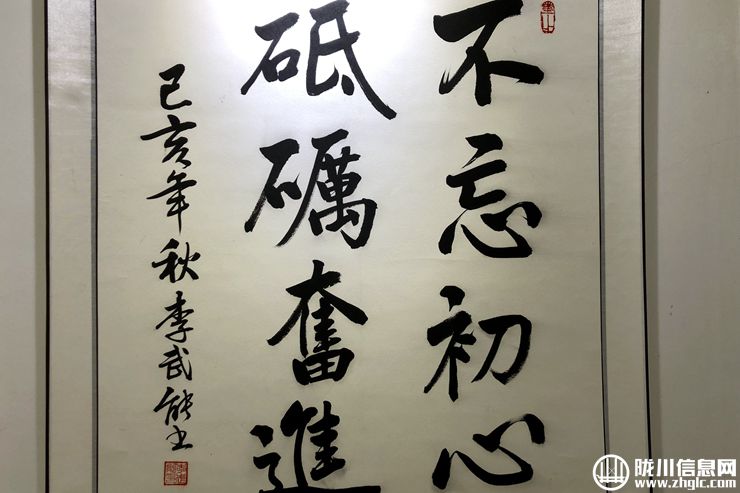 不忘初心
砥礪奮進
己亥年秋李武能书
陇川信息网
www.zhglc.com